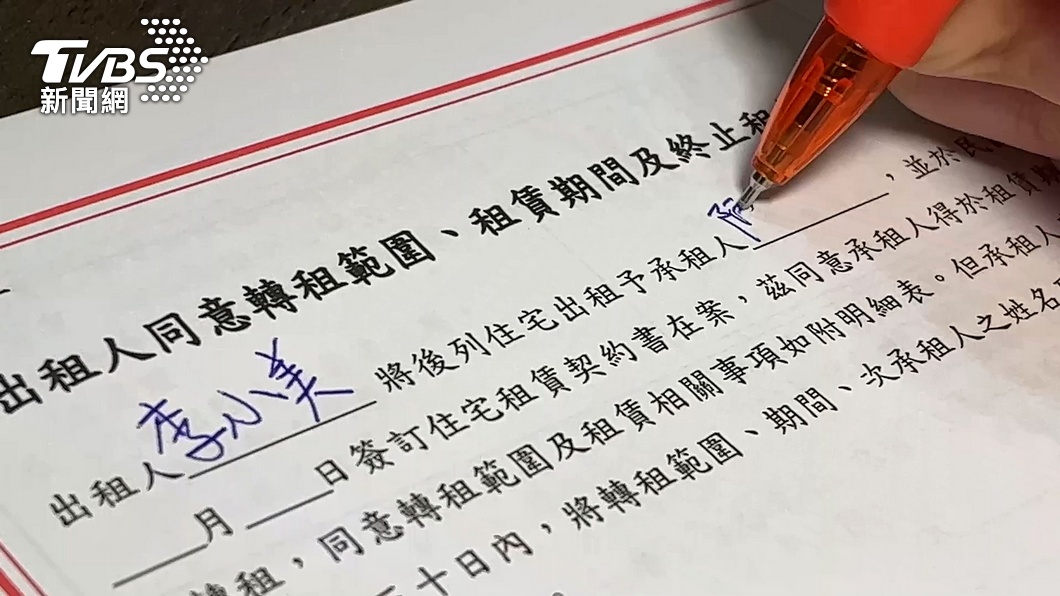 TVBS
新聞網
出租人同意轉租範圍、租賃期間及終止租
出租人 李小美 將後列住宅出租予承租人 ，並於民
月 日簽訂住宅租賃契約書在案，茲同意承租人得於租賃期
轉租，同意轉租範圍及租賃相關事項如附明細表。但承租人
十日內，將轉租範圍、期間、次承租人之姓名